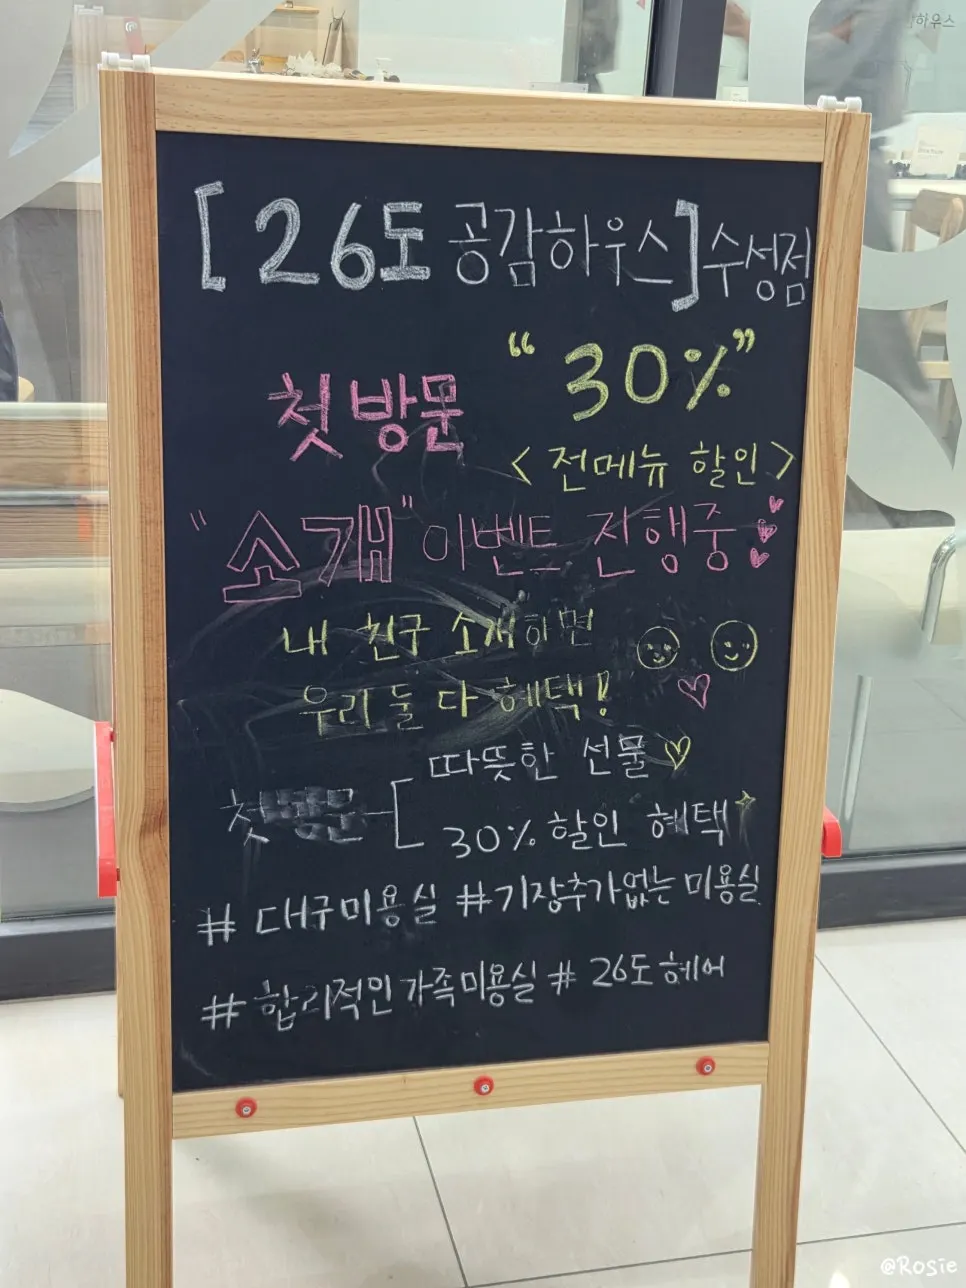 하우스
[26도 공감하우스] 수성점
첫방문 “30%”
<전메뉴 할인>
"소개" 이벤트 진행중
내 친구 소개하면
우리 둘 다 혜택!
따뜻한 선물
첫방문
30% 할인 혜택
# 대구미용실 #기장추가없는 미용실
# 합리적인가족미용실 # 26도헤어
@Rosie